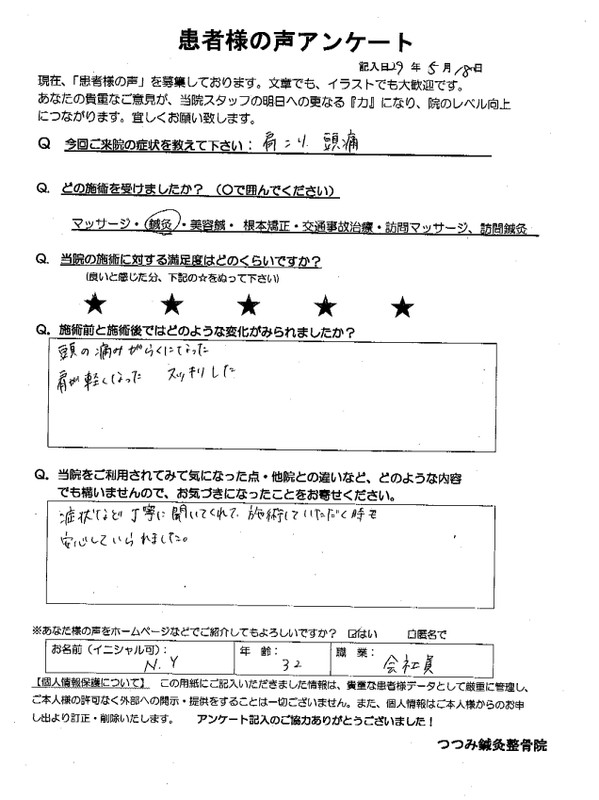 患者様の声アンケート
記入日29年5月18日
現在、「患者様の声」を募集しております。文章でも、イラストでも大歓迎です。
あなたの貴重なご意見が、当院スタッフの明日への更なる『力』になり、院のレベル向上
につながります。宜しくお願い致します。
Q 今回ご来院の症状を教えて下さい： 肩こり 頭痛
Q. どの施術を受けましたか？（○で囲んでください）
マッサージ・鍼灸・美容鍼・ 根本矯正・交通事故治療・訪問マッサージ、訪問鍼灸
Q. 当院の施術に対する満足度はどのくらいですか？
(良いと感じた分、下記の☆をぬって下さい)
★ ★ ★ ★ ★
Q. 施術前と施術後ではどのような変化がみられましたか？
頭の痛みがらくになった
肩が軽くなった スッキリした
Q. 当院をご利用されてみて気になった点・他院との違いなど、どのような内容
でも構いませんので、お気づきになったことをお寄せください。
症状など丁寧に聞いてくれて、施術していただく時も
安心していられました。
※あなた様の声をホームページなどでご紹介してもよろしいですか？ ☑はい □匿名で
お名前（イニシャル可）： N.Y 年 齢： 32 職 業： 会社員
【個人情報保護について】 この用紙にご記入いただきました情報は、貴重な患者様データとして厳重に管理し、
ご本人様の許可なく外部への開示・提供をすることは一切ございません。また、個人情報はご本人様からのお申
し出より訂正・削除いたします。 アンケート記入のご協力ありがとうございました！
つつみ鍼灸整骨院